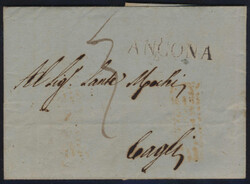 ANCONA
Al Sig. Sante Mochi
Cagli